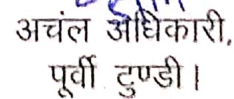 अचंल अधिकारी,
पूर्वी टुण्डी।